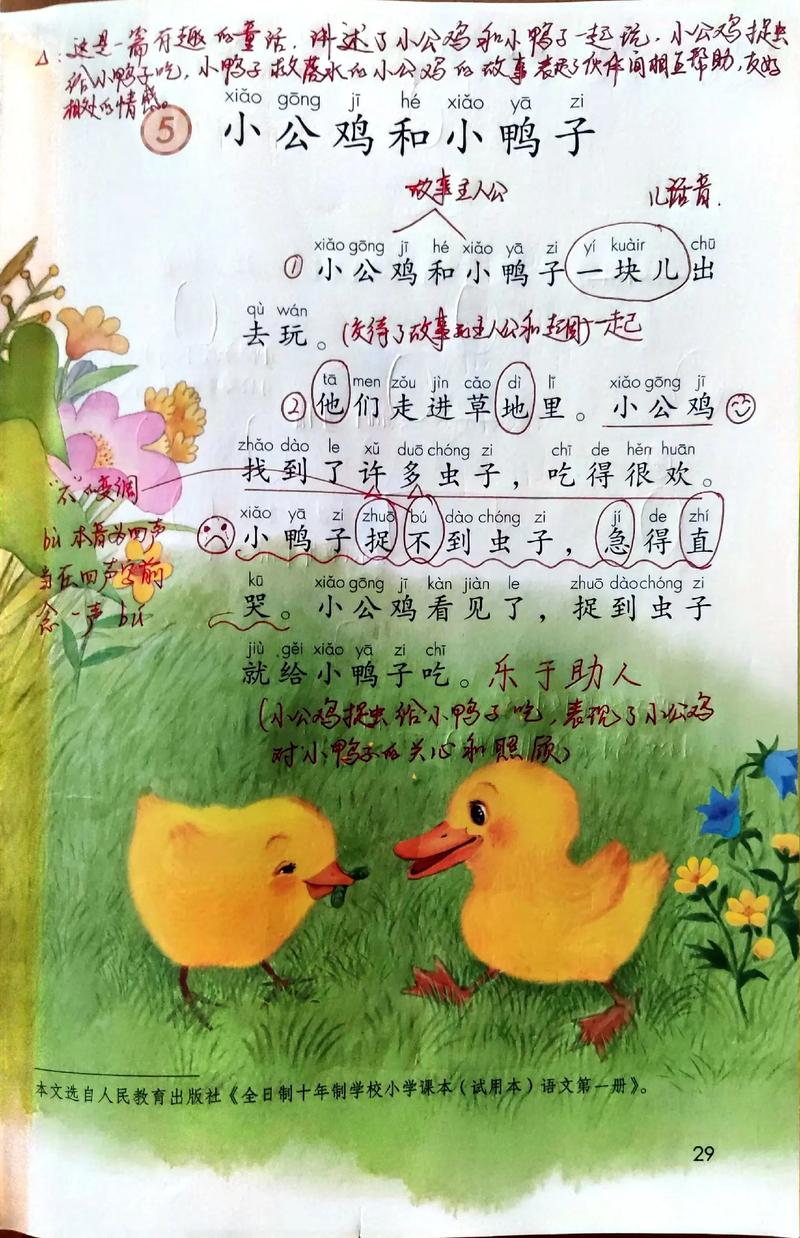 △:这是一篇有趣的童话,讲述了小公鸡和小鸭子一起玩,小公鸡捉虫
给小鸭子吃,小鸭子救落水的小公鸡的故事表现了伙伴间相互帮助,友好
相处的情感。
xiǎo gōng jī hé xiǎo yā zi
5 小公鸡和小鸭子
故事主人公 儿话音.
xiǎo gōng jī hé xiǎo yā zi yí kuàir chū
① 小公鸡和小鸭子一块儿出
qù wán
去玩。(交待了故事的主人公和起因)一起
tā men zǒu jìn cǎo dì lǐ xiǎo gōng jī
② 他们走进草地里。小公鸡
zhǎo dào le xǔ duō chóng zi chī de hěn huān
找到了许多虫子,吃得很欢。
"不"变调
bù 本音为四声
当在四声字前
念一声 bú
xiǎo yā zi zhuō bú dào chóng zi jí de zhí
小鸭子捉不到虫子,急得直
kū xiǎo gōng jī kàn jiàn le zhuō dào chóng zi
哭。小公鸡看见了,捉到虫子
jiù gěi xiǎo yā zi chī
就给小鸭子吃。乐于助人
(小公鸡捉虫给小鸭子吃,表现了小公鸡
对小鸭子的关心和照顾)
本文选自人民教育出版社《全日制十年制学校小学课本(试用本)语文第一册》。
29